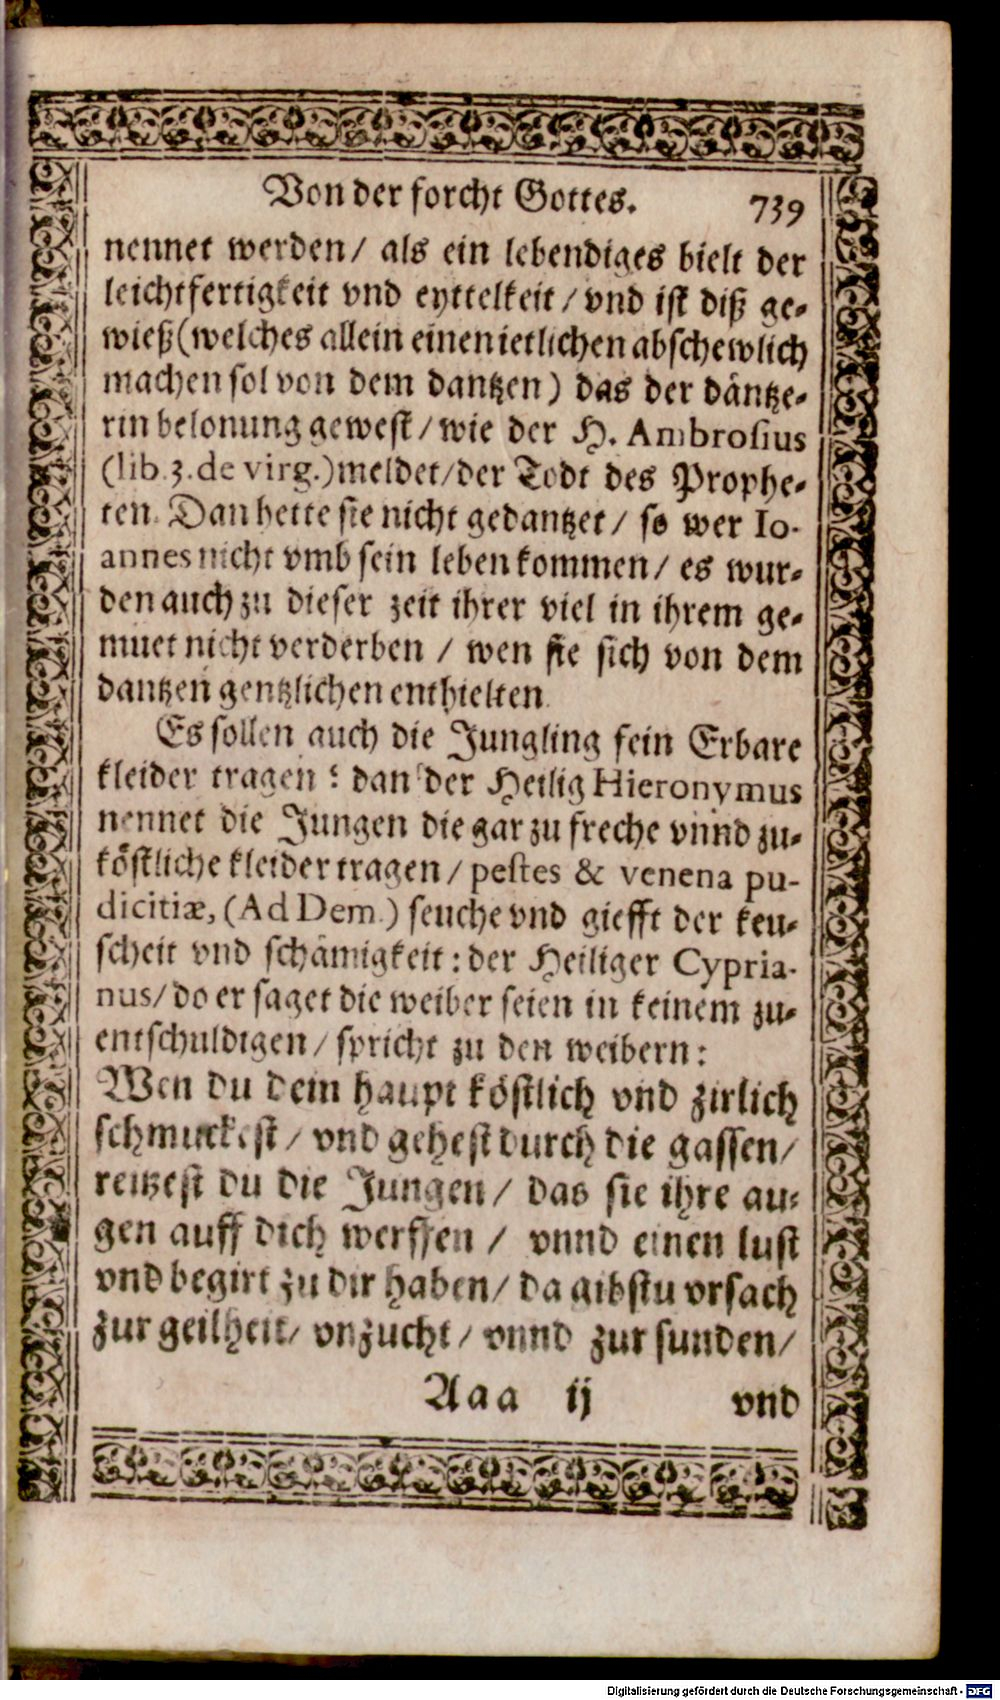 Von der forcht Gottes. 739
nennet werden/ als ein lebendiges bielt der
leichtfertigkeit vnd eyttelkeit/ vnd ist diß ge-
wieß (welches allein einen ietlichen abschewlich
machen sol von dem dantzen) das der däntze-
rin belonung gewest/ wie der H. Ambrosius
(lib. 3. de virg.) meldet/ der Todt des Prophe-
ten. Dan hette sie nicht gedantzet/ so wer Io-
annes nicht vmb sein leben kommen/ es wur-
den auch zu dieser zeit ihrer viel in ihrem ge-
muet nicht verderben/ wen sie sich von dem
dantzen gentzlichen enthielten.
Es sollen auch die Jungling fein Erbare
kleider tragen: dan der Heilig Hieronymus
nennet die Jungen die gar zu freche vnnd zu-
köstliche kleider tragen/ pestes & venena pu-
dicitiæ, (Ad Dem.) seuche vnd giefft der keu-
scheit vnd schämigkeit: der Heiliger Cypria-
nus/ do er saget die weiber seien in keinem zu-
entschuldigen/ spricht zu den weibern:
Wen du dem haupt köstlich vnd zirlich
schmuckest/ vnd gehest durch die gassen/
reitzest du die Jungen/ das sie ihre au-
gen auff dich werffen/ vnnd einen lust
vnd begirt zu dir haben/ da gibstu vrsach
zur geilheit/ vnzucht/ vnnd zur sunden/
Aaa ij vnd
Digitalisierung gefördert durch die Deutsche Forschungsgemeinschaft - DFG